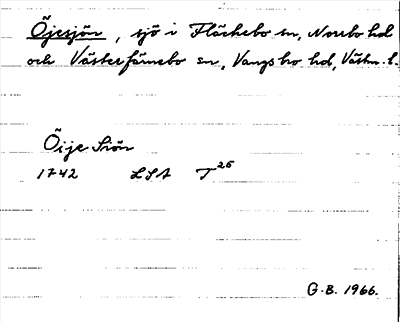 Öjesjön, sjö i Fläckebo sn, Norrbo hd
och Västerfärnebo sn, Vangsbro hd, Västm. l.
Öije Siön
1742 LSA T26
G.B. 1966.